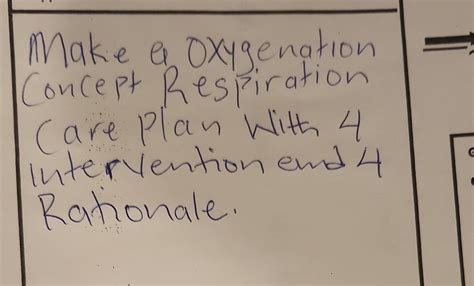 Make a Oxygenation
Concept Respiration
Care Plan With 4
Intervention and 4
Rationale.